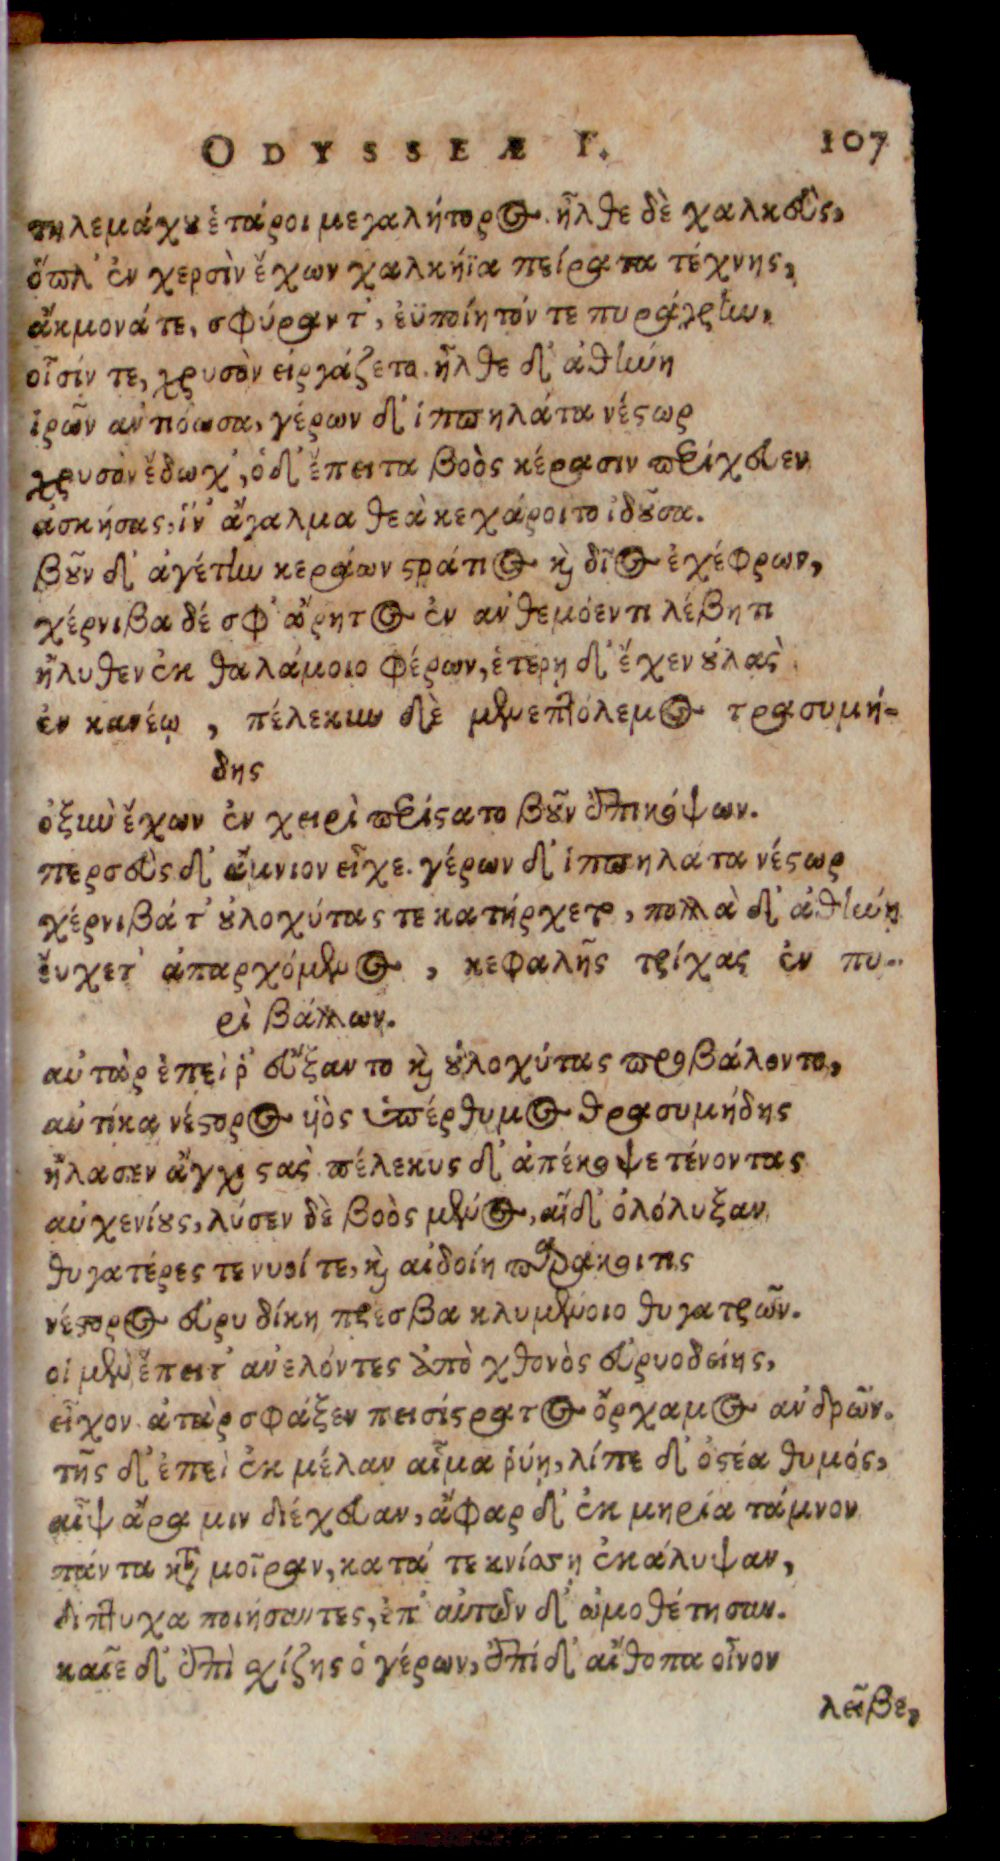 ODYSSEÆ Γ. 107
τηλεμάχου ἑτάροι μεγαλήτορος. ἦλθε δὲ χαλκεὺς,
ὅπλ' ἐν χερσὶν ἔχων χαλκήϊα πείρατα τέχνης,
ἄκμονά τε, σφύραν τ', ἐϋποίητόν τε πυράγρην,
οἷσίν τε, χρυσὸν εἰργάζετο. ἦλθε δ' ἀθήνη
ἱρῶν ἀντιόωσα, γέρων δ' ἱππηλάτα νέστωρ
χρυσὸν ἔδωχ', ὁ δ' ἔπειτα βοὸς κέρασιν περίχευεν
ἀσκήσας, ἵν' ἄγαλμα θεὰ κεχάροιτο ἰδοῦσα.
βοῦν δ' ἀγέτην κεράων στράτιος καὶ δῖος ἐχέφρων,
χέρνιβα δέ σφ' ἄρητος ἐν ἀνθεμόεντι λέβητι
ἤλυθεν ἐκ θαλάμοιο φέρων, ἑτέρῃ δ' ἔχεν οὐλὰς
ἐν κανέῳ, πέλεκυν δὲ μενεπτόλεμος τρασυμή-
δης
ὀξὺν ἔχων ἐν χειρὶ παρίστατο βοῦν ἐπικόψων.
περσεὺς δ' ἄμνιον εἶχε. γέρων δ' ἱππηλάτα νέστωρ
χέρνιβά τ' οὐλοχύτας τε κατήρχετο, πολλὰ δ' ἀθήνῃ
εὔχετ' ἀπαρχόμενος, κεφαλῆς τρίχας ἐν πυ-
ρὶ βάλλων.
αὐτὰρ ἐπεί ῥ' εὔξαντο καὶ οὐλοχύτας προβάλοντο,
αὐτίκα νέστορος υἱὸς ὑπέρθυμος θρασυμήδης
ἤλασεν ἄγχι στὰς πέλεκυς δ' ἀπέκοψε τένοντας
αὐχενίους, λύσεν δὲ βοὸς μένος, αἵ δ' ὀλόλυξαν
θυγατέρες τε νυοί τε, καὶ αἰδοίη παράκοιτις
νέστορος εὐρυδίκη πρέσβα κλυμένοιο θυγατρῶν.
οἱ μὲν ἔπειτ' ἀνελόντες ἀπὸ χθονὸς εὐρυοδείης,
εἶχον. ἀτὰρ σφάξεν πεισίστρατος ὄρχαμος ἀνδρῶν.
τῆς δ' ἐπεὶ ἐκ μέλαν αἷμα ῥύη, λίπε δ' ὀστέα θυμός,
αἶψ' ἄρα μιν διέχευαν, ἄφαρ δ' ἐκ μηρία τάμνον
πάντα κατὰ μοῖραν, κατά τε κνίσῃ ἐκάλυψαν,
δίπτυχα ποιήσαντες, ἐπ' αὐτῶν δ' ὠμοθέτησαν.
καῖε δ' ἐπὶ σχίζης ὁ γέρων, ἐπί δ' αἴθοπα οἶνον
λεῖβε,